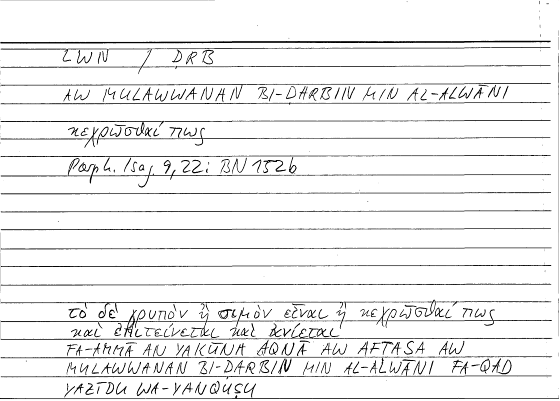 LWN / ḌRB
AW MULAWWANAN BI-ḌARBIIN MIN AL-ALWĀNI
κεχρῶσθαί πως
Porph. Isag. 9, 22: BN 152b
τὸ δὲ γρυπὸν ἢ σιμὸν εἶναι ἢ κεχρῶσθαί πως
καὶ ἐπιτείνεται καὶ ἀνίεται
FA-AMMĀ AN YAKŪNA AQNĀ AW AFṬASA AW
MULAWWANAN BI-ḌARBIN MIN AL-ALWĀNI FA-QAD
YAZĪDU WA-YANQUṢU